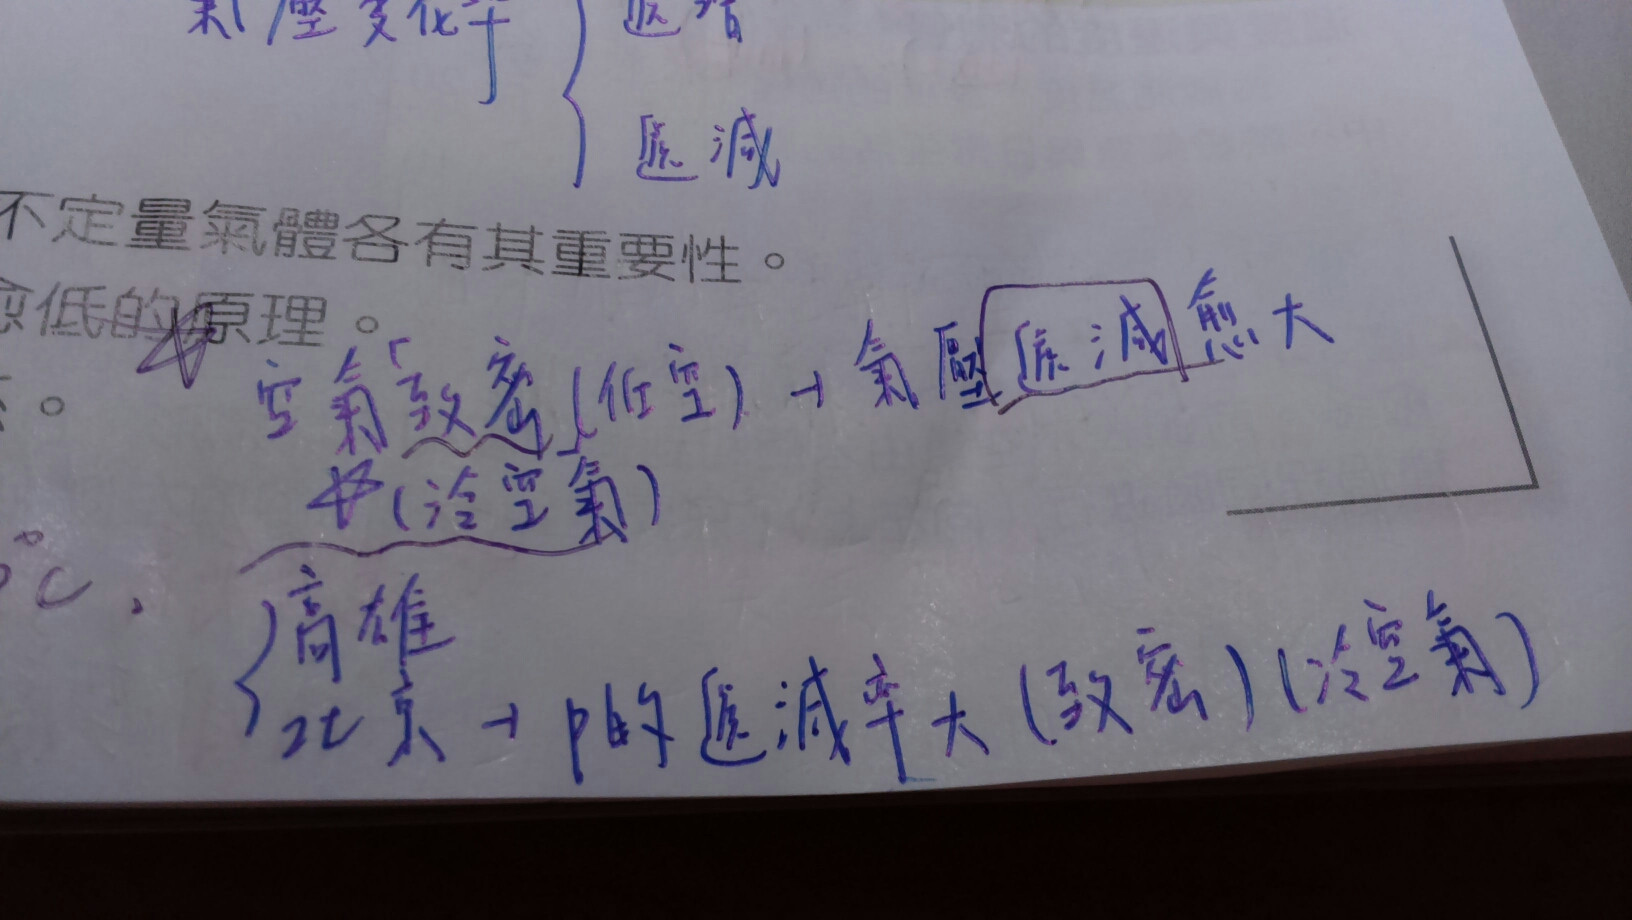 氣壓變化率 { 遞增
遞減
不定量氣體各有其重要性。
愈低的原理。
。
空氣「致密」(低空) → 氣壓遞減愈大
(冷空氣)
°C.
高雄
北京 → P的遞減率大(致密)(冷空氣)